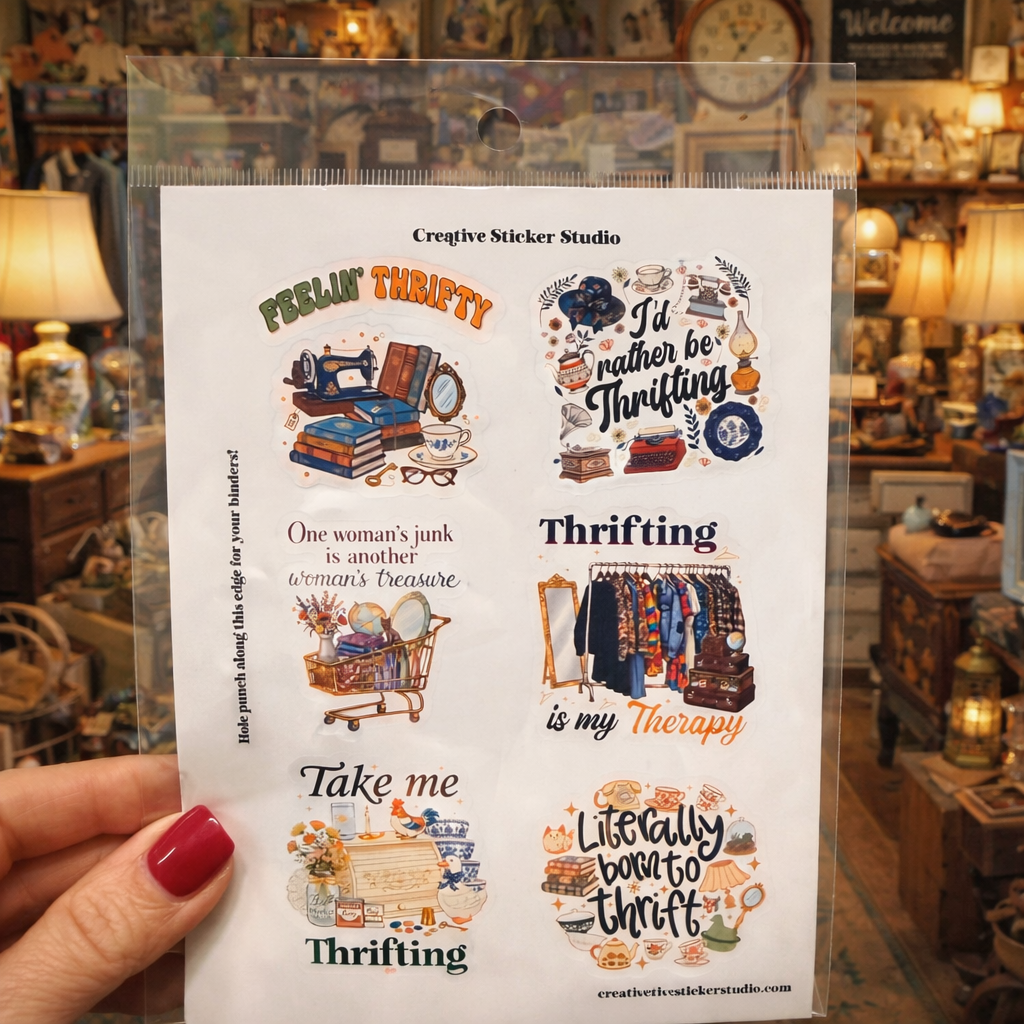 Welcome
Creative Sticker Studio
FEELIN' THRIFTY
I'd
rather be
Thrifting
Hole punch along this edge for your binders!
One woman's junk
is another
woman's treasure
Thrifting
is my Therapy
Take me
Thrifting
Literally
born to
thrift
creativetivestickerstudio.com